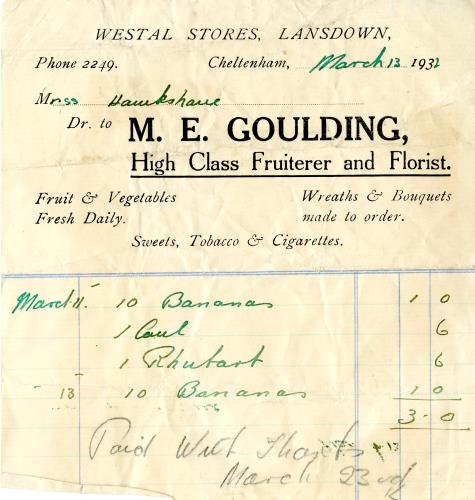 WESTAL STORES, LANSDOWN,
Phone 2249. Cheltenham, March 13 1932
Miss Hawkshaw
Dr. to M. E. GOULDING,
High Class Fruiterer and Florist.
Fruit & Vegetables Wreaths & Bouquets
Fresh Daily. made to order.
Sweets, Tobacco & Cigarettes.
March 11 10 Bananas 1 0
1 Caul 6
1 Rhubarb 6
- 13 10 Bananas 1 0
3-0
Paid With Thanks
March 23rd